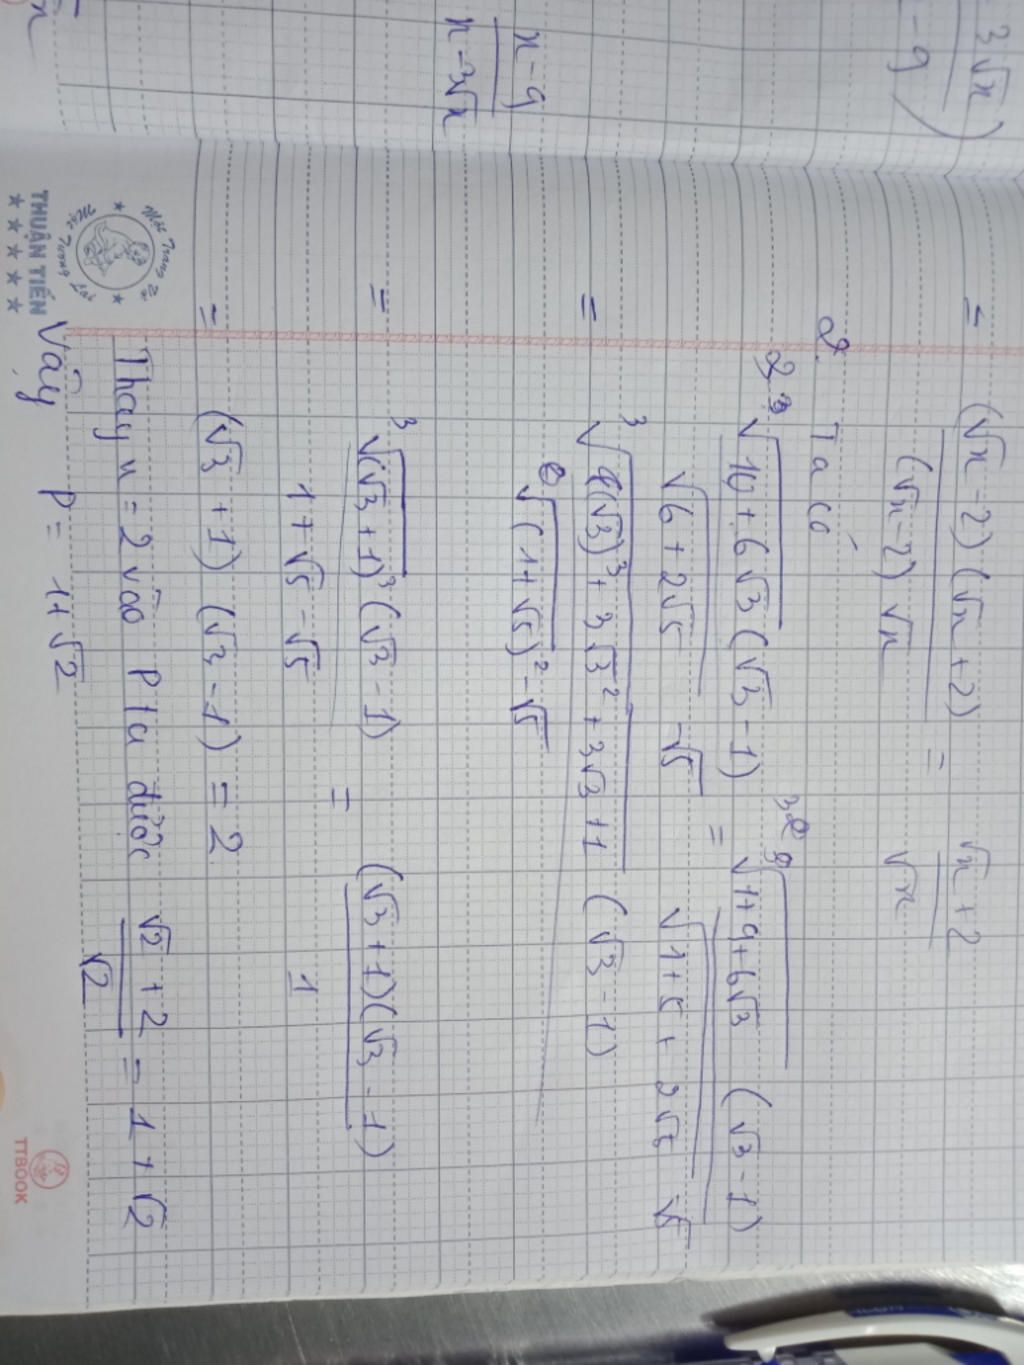 3√x
- 9 )
x - 9
x - 3√x
= (√x - 2)(√x + 2) = √x + 2
(√x - 2) √x √x
2. Ta có
³√10 + 6√3 (√3 - 1) = ³√1 + 9 + 6√3 (√3 - 1)
√6 + 2√5 - √5 √1 + 5 + 2√5 √5
= ³√(√3)³ + 3√3² + 3√3 + 1 (√3 - 1)
√(1 + √5)² - √5
= ³√(√3 + 1)³ (√3 - 1) = (√3 + 1)(√3 - 1)
1 + √5 - √5 1
= (√3 + 1) (√3 - 1) = 2
Thay x = 2 vào P ta được √2 + 2 = 1 + √2
√2
Vậy P = 1 + √2
THUẬN TIẾN
TTBOOK